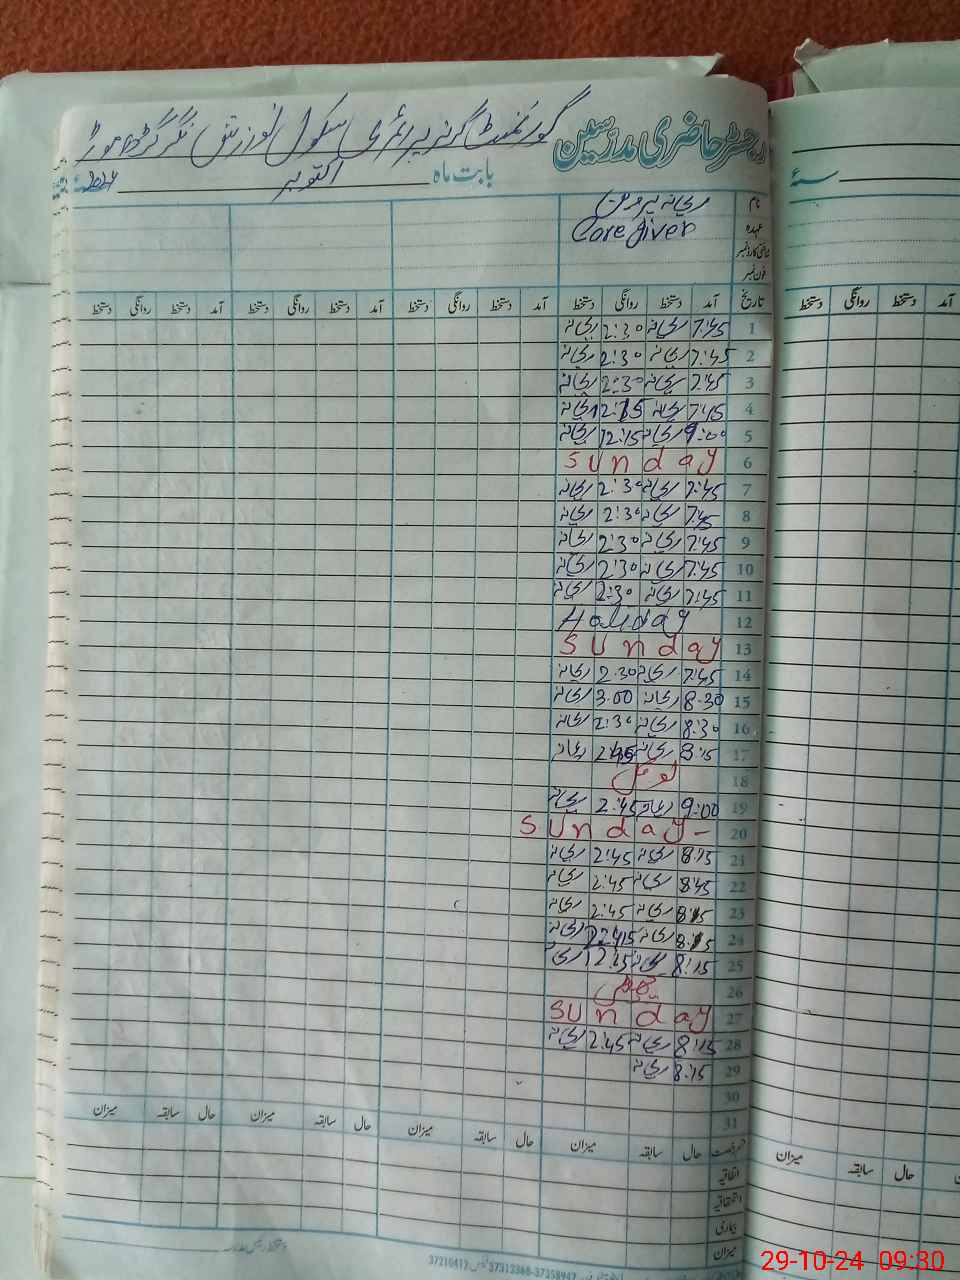 رجسٹر حاضری مدرسین گورنمنٹ گرلز پرائمری سکول
بابت ماہ اکتوبر ۲۰۲۴ء
سنۂ
نام ریحانہ پروین
عہدہ Care giver
شناختی کارڈ نمبر
فون نمبر
تاریخ آمد دستخط روانگی دستخط آمد دستخط روانگی دستخط آمد دستخط روانگی دستخط
آمد دستخط روانگی دستخط
1 7:45 ریحانہ 2:30 ریحانہ
2 7:45 ریحانہ 2:30 ریحانہ
3 7:45 ریحانہ 2:30 ریحانہ
4 7:45 ریحانہ 12:15 ریحانہ
5 9:00 ریحانہ 12:15 ریحانہ
6 Sunday
7 7:45 ریحانہ 2:30 ریحانہ
8 7:45 ریحانہ 2:30 ریحانہ
9 7:45 ریحانہ 2:30 ریحانہ
10 7:45 ریحانہ 2:30 ریحانہ
11 7:45 ریحانہ 2:30 ریحانہ
12 Haliday
13 Sunday
14 7:45 ریحانہ 2:30 ریحانہ
15 8:30 ریحانہ 3:00 ریحانہ
16 8:30 ریحانہ 2:30 ریحانہ
17 8:15 ریحانہ 2:45 ریحانہ
18
19 9:00 ریحانہ 2:45 ریحانہ
20 Sunday-
21 8:15 ریحانہ 2:45 ریحانہ
22 8:45 ریحانہ 2:45 ریحانہ
23 8:15 ریحانہ 2:45 ریحانہ
24 8:15 ریحانہ ریحانہ
25 8:15 ریحانہ 12:15
26
27 Sunday
28 8:15 ریحانہ 2:45 ریحانہ
29 8:15 ریحانہ
30
31
رخصت حال سابقہ میزان حال سابقہ میزان حال سابقہ میزان
حال سابقہ میزان
اتفاقیہ
استحقاقیہ
بیماری
میزان
29-10-24 09:30